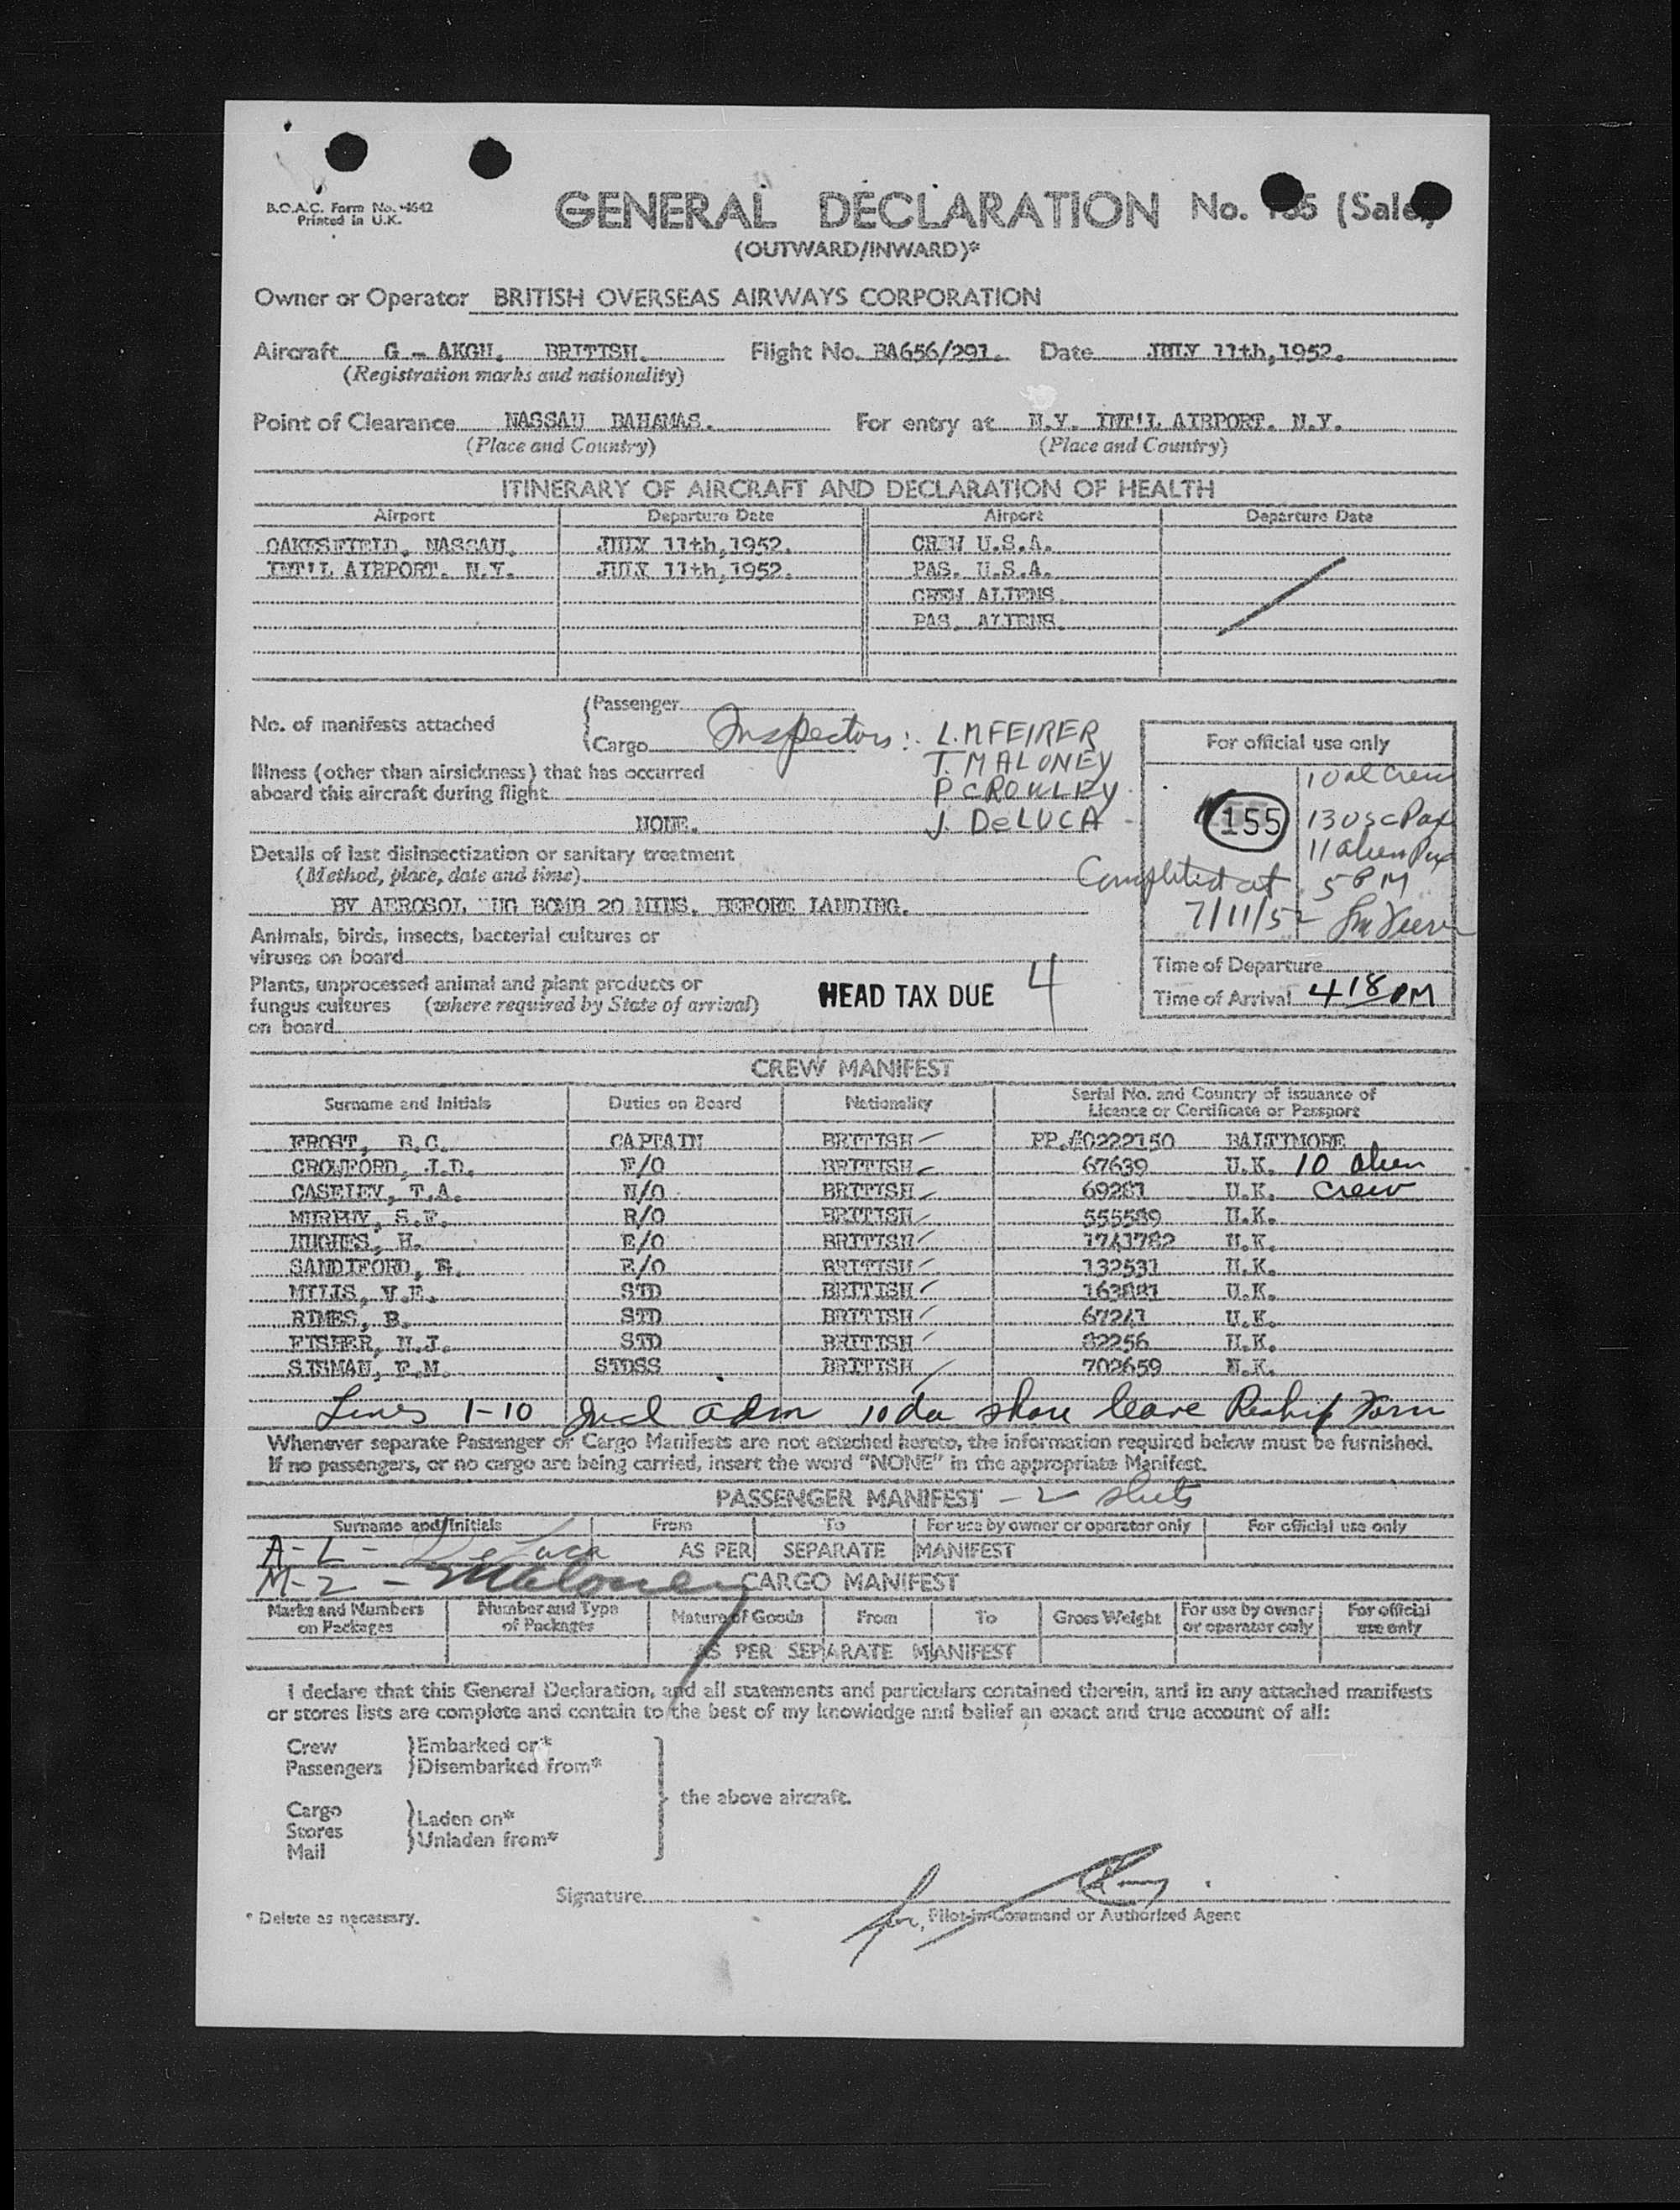 B.O.A.C. Form No. 4642
Printed in U.K.
GENERAL DECLARATION No. (Sale)
(OUTWARD/INWARD)*
Owner or Operator BRITISH OVERSEAS AIRWAYS CORPORATION
Aircraft G - AKGH. BRITISH. Flight No. BA656/291. Date JULY 11th,1952.
(Registration marks and nationality)
Point of Clearance NASSAU BAHAMAS. For entry at N.Y. INT'L AIRPORT. N.Y.
(Place and Country) (Place and Country)
ITINERARY OF AIRCRAFT AND DECLARATION OF HEALTH
Airport Departure Date Airport Departure Date
OAKESFIELD, NASSAU. JULY 11th,1952. CREW U.S.A.
INT'L AIRPORT. N.Y. JULY 11th,1952. PAS. U.S.A.
CREW ALIENS.
PAS. ALIENS.
No. of manifests attached
Passenger
Cargo
Inspectors: L.M FEIRER
T. MALONEY
P CROWLEY
J. DeLUCA
Illness (other than airsickness) that has occurred
aboard this aircraft during flight
NONE.
Details of last disinsectization or sanitary treatment
(Method, place, date and time)
BY AEROSOL BOMB 20 MINS. BEFORE LANDING.
Animals, birds, insects, bacterial cultures or
viruses on board
Plants, unprocessed animal and plant products or
fungus cultures (where required by State of arrival)
on board
HEAD TAX DUE 4
For official use only
10 al Crew
155
13 usc Pax
11 alien Pax
Completed at 5 PM
7/11/52
Time of Departure
Time of Arrival 4 18 PM
CREW MANIFEST
Surname and Initials Duties on Board Nationality Serial No. and Country of issuance of
Licence or Certificate or Passport
FROST, B.C. CAPTAIN BRITISH PP.#0222150 BALTIMORE
CROWFORD, J.D. F/O BRITISH 67639 U.K. 10 alien
CASELEY, T.A. N/O BRITISH 69281 U.K. crew
MURPHY, S.F. R/O BRITISH 555589 U.K.
HUGHES, H. E/O BRITISH 1741782 U.K.
SANDIFORD, R. E/O BRITISH 132531 U.K.
MILLS, V.E. STD BRITISH 163881 U.K.
RIMES, B. STD BRITISH 67241 U.K.
FISHER, N.J. STD BRITISH 82256 U.K.
SISMAN, E.M. STDSS BRITISH 702659 U.K.
Lines 1-10 Incl adm 10 da shore leave Reship Forn
Whenever separate Passenger or Cargo Manifests are not attached hereto, the information required below must be furnished.
If no passengers, or no cargo are being carried, insert the word "NONE" in the appropriate Manifest.
PASSENGER MANIFEST - 2 sheets
Surname and Initials From To For use by owner or operator only For official use only
A-L - DeLuca AS PER SEPARATE MANIFEST
M-Z - Maloney
CARGO MANIFEST
Marks and Numbers on Packages Number and Type of Packages Nature of Goods From To Gross Weight For use by owner or operator only For official use only
AS PER SEPARATE MANIFEST
I declare that this General Declaration, and all statements and particulars contained therein, and in any attached manifests
or stores lists are complete and contain to the best of my knowledge and belief an exact and true account of all:
Crew Embarked on*
Passengers Disembarked from*
the above aircraft.
Cargo Laden on*
Stores
Mail Unladen from*
Signature
for, Pilot-in-Command or Authorised Agent
* Delete as necessary.